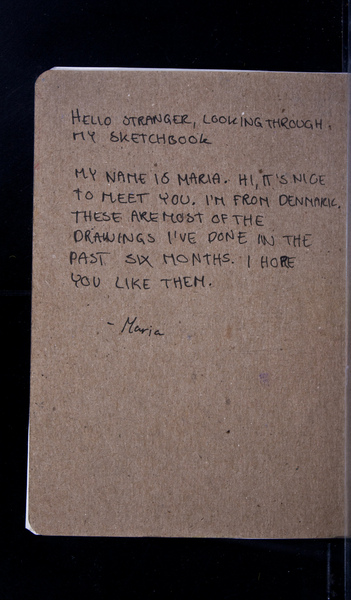 HELLO STRANGER, LOOKING THROUGH
MY SKETCHBOOK
MY NAME IS MARIA. HI, IT'S NICE
TO MEET YOU. I'M FROM DENMARK.
THESE ARE MOST OF THE
DRAWINGS I'VE DONE IN THE
PAST SIX MONTHS. I HOPE
YOU LIKE THEM.
- Maria